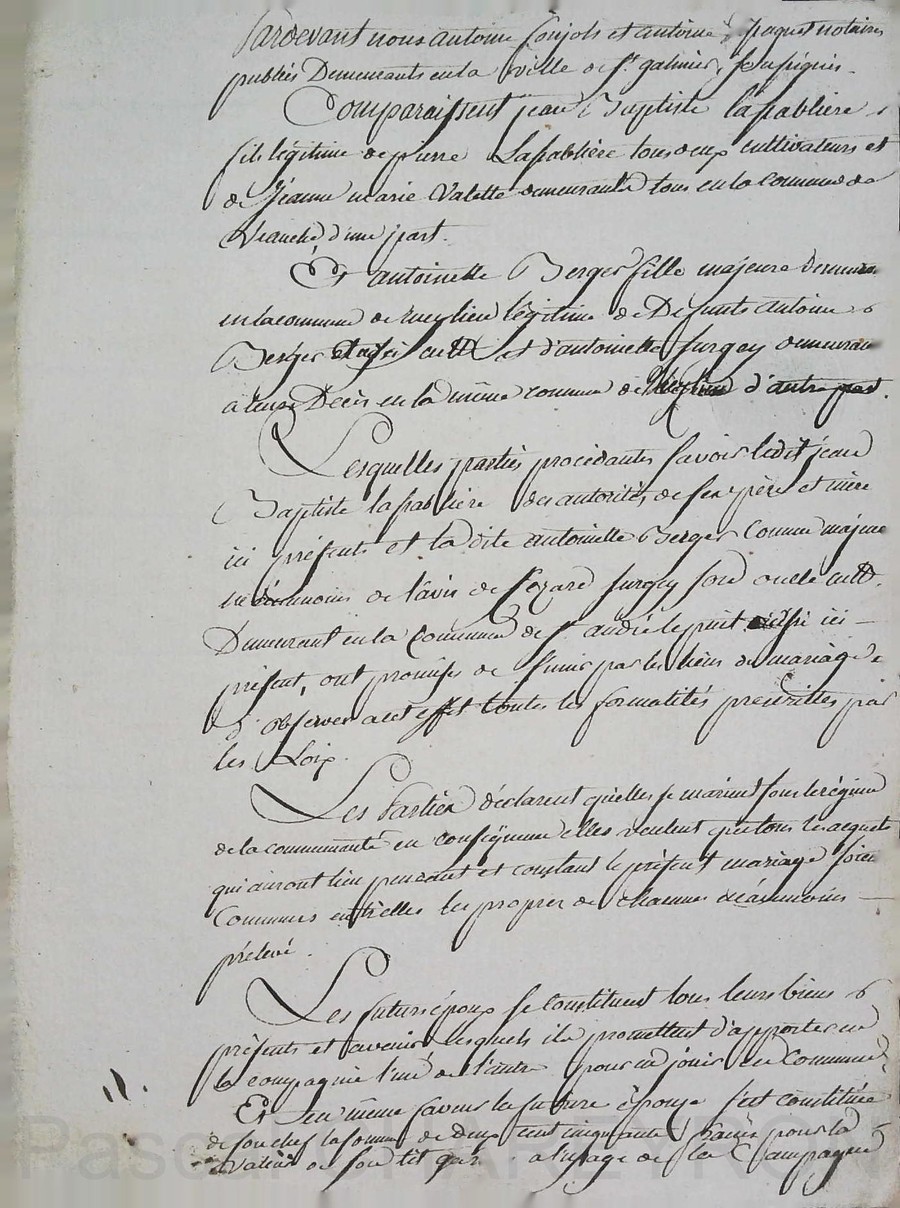 Pardevant nous antoine et antoine paquet notaires
publics Demeurants en la ville de St galmier, soussignés
Comparaissent jean Baptiste lasablière
fils légitime de pierre Lasablière tous deux cultivateurs et
de jeanne marie Valette demeurants tous en la Commune de
Veauche d'une part.
Et antoinette Berger fille majeure demeurant
en la commune de légitime de Défunts antoine
Berger cultr et d'antoinette furgey demeurant
a leurs Décès en la même commune de d'autre part.
Lesquelles parties procédantes savoir ledit jean
Baptiste lasablière des autorités de ses père et mère
ici présents et la dite antoinette Berger Comme majeure
néanmoins de l'avis de furgey son oncle cultr.
Demeurant en la Commune de St andré le puit aussi ici
présent, ont promis de s'unir par les liens du mariage
d'observer a cet effet toutes les formalités prescrittes par
les Loix.
Les Parties déclarent qu'elles se marient sous le régime
de la communauté en conséquence elles veulent que tous les acquets
qui auront lieu pendant et constant le présent mariage soient
Communs entr'elles les propres de chacune néanmoins
prélevé.
Les futurs époux se Constituent tous leurs biens
présents et avenir lesquels ils promettent d'apporter en
la compagnie l'un de l'autre pour en jouir en Commun
Et en même faveur la future épouse s'est constituée
de son chef la somme de deux cent cinquante francs pour la
valeur de son lit garni a l'usage de la Campagne
Pascal